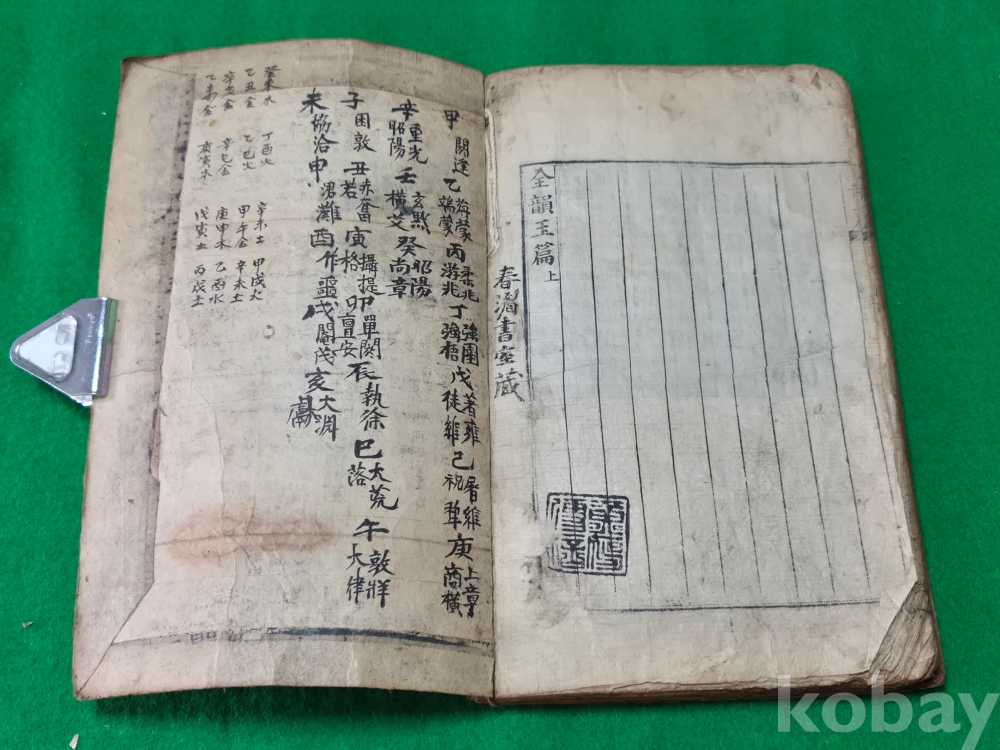 全韻玉篇 上
春 書室蔵
甲 閼逢 乙 旃蒙 端蒙 丙 柔兆 游兆 丁 強圉 強梧 戊 著雍 徒維 己 屠維 祝犂 庚 上章 商橫
辛 重光 昭陽 壬 玄黓 橫艾 癸 昭陽 尚章
子 困敦 丑 赤奮若 寅 攝提格 卯 單閼 亶安 辰 執徐 巳 大荒落 午 敦牂 大律
未 協洽 申 涒灘 酉 作噩 戌 閹茂 亥 大淵獻
癸未木 丁酉火 辛未土 甲戌火
乙丑金 乙巳火 甲午金 辛未土
辛亥金 辛巳金 庚申木 乙酉水
乙未金 庚寅木 戊寅土 丙戌土
kobay